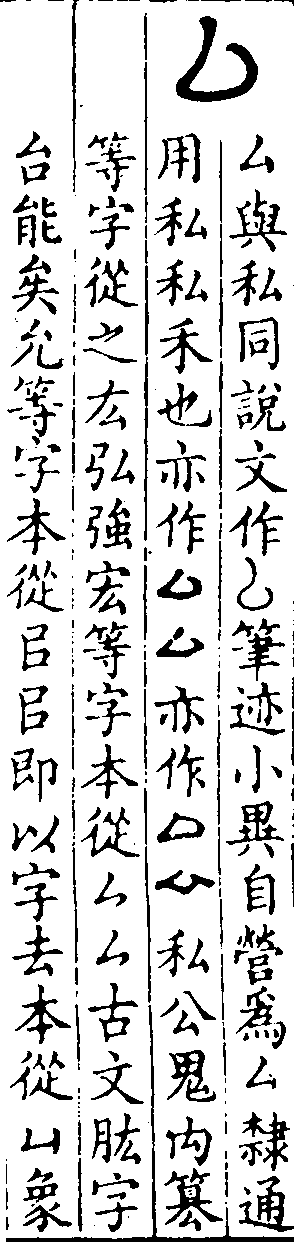 厶
厶與私同說文作厶筆迹小異自營爲厶隸通
用私私禾也亦作厶厶亦作私公鬼禸篡
等字從之厷弘強宏等字本從厶厶古文肱字
台能矣允等字本從㠯㠯即以字去本從凵象